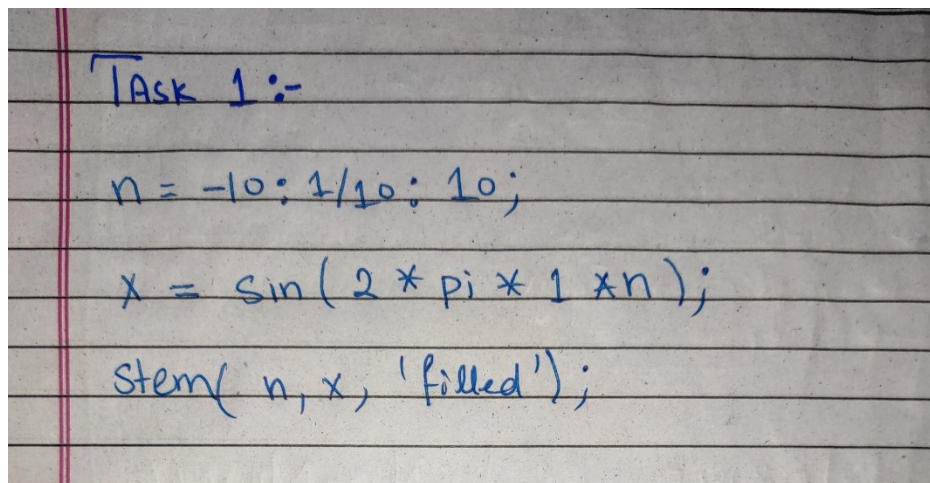 TASK 1 :-
n = -10 : 1/10 : 10;
x = sin( 2 * pi * 1 *n );
stem( n, x, 'filled');